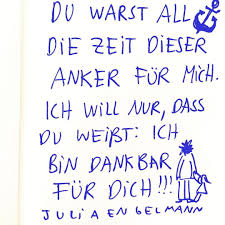 DU WARST ALL
DIE ZEIT DIESER
ANKER FÜR MICH.
ICH WILL NUR, DASS
DU WEIßT: ICH
BIN DANKBAR
FÜR DICH!!!
JULIA ENGELMANN